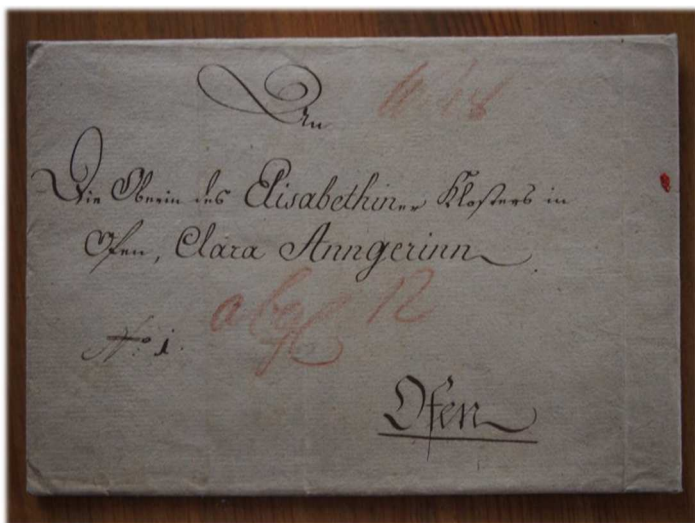 An
Die Oberin des Elisabethiner Klosters in
Ofen, Clara Anngerinn
No 1.
12
Ofen